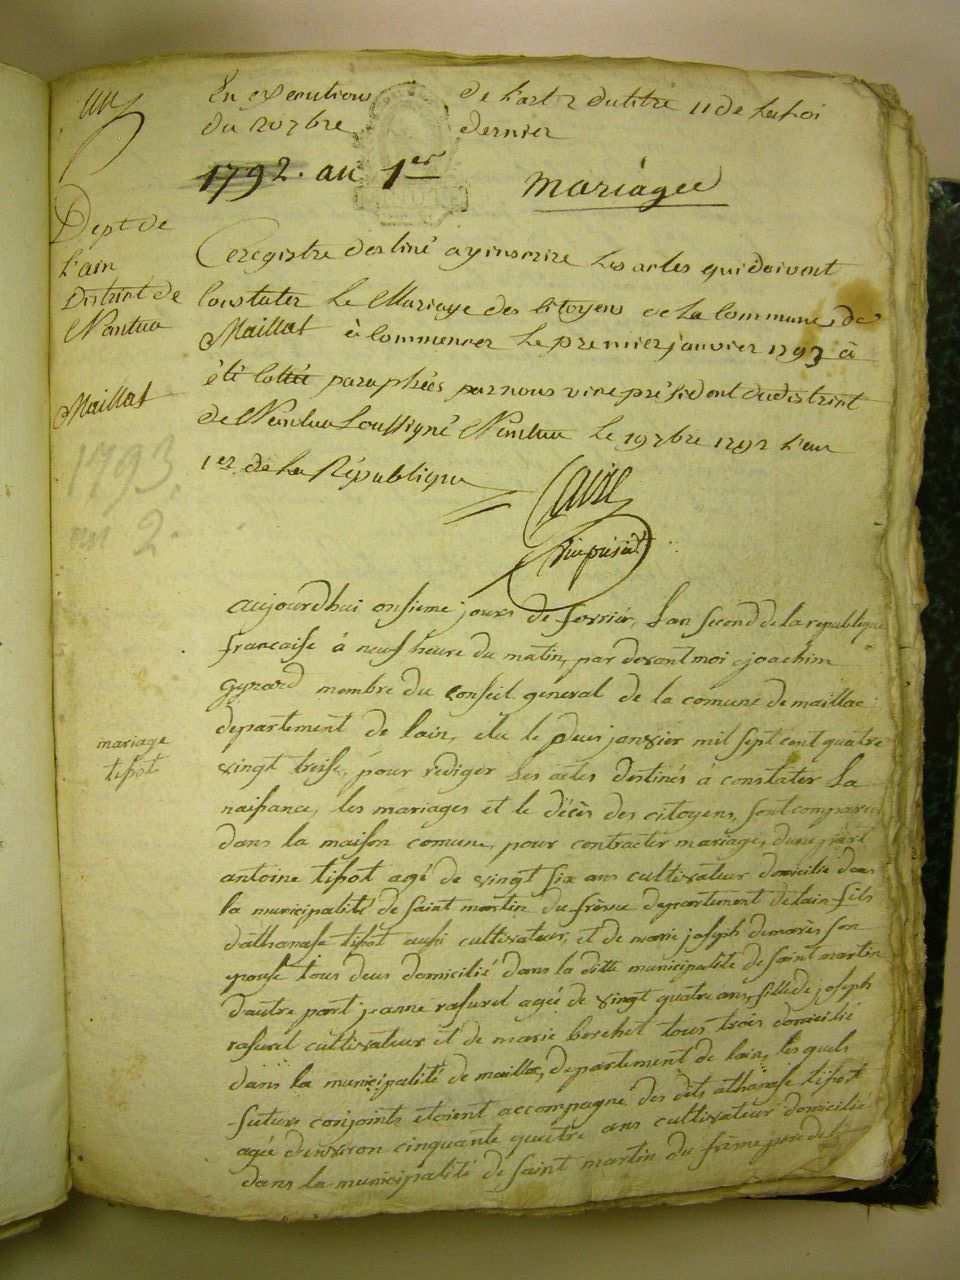 un
En execution de l'art 2 du titre 11 de la Loi
du 20 7bre dernier
1792. au 1er mariages
Dept de
l'ain
District de
Nantua
Maillat
1793.
an 2.
Ce registre destiné a y inscrire Les actes qui doivent
Constater Le Mariage des Citoyens de La Commune de
Maillat à Commencer Le premier janvier 1793 à
été Cotté paraphées par nous vice président du district
de Nantua Soussigné Nantua Le 19 xbre 1792 L'an
1er de La République
vice président
mariage
tissot
aujourdhui onsieme jours de fevrier, Lan second de la republique
francaise à neuf heure du matin, par devant moi joachim
Gyrard membre du Conseil general de la comune de maillac
departement de lain, elu le deux janvier mil sept cent quatre
vingt treise, pour rediger Les actes destinés à constater La
naissance, les mariages et le décès des citoyens, sont comparu
dans la maison comune, pour contracter mariage, dune part
antoine tissot agé de vingt six ans cultivateur domicilié dans
la municipalité de saint martin du frêne departement de lain fils
dathanase tissot aussi cultivateur, et de marie joseph demarès son
epouse tous deux domicilié dans la ditte municipalité de saint martin
dautre part jeanne rasurel agée de vingt quatre ans, fille de joseph
rasurel cultivateur et de marie berchet tous trois domicilié
dans la municipalité de maillac, departement de lain, les quels
futurs conjoints etoient accompagné des dits athanase tissot
agée denviron cinquante quatre ans cultivateur domicilié
dans la municipalité de saint martin du frêne pere de